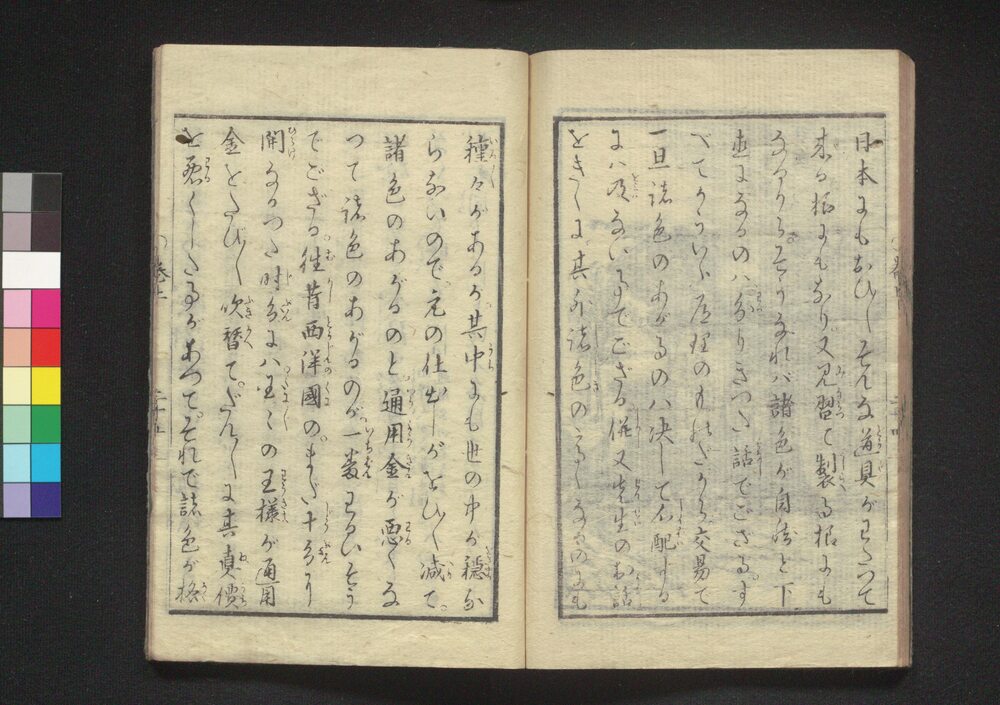 日本にもおひ〳〵そんな道具がわたつて
来る様にもなり又見習て製る様にも
なるから。そうなれバ諸色が自然と下
直になるのハ分りきつた話でござる。す
べてかういふ道理のものだから交易で
一旦諸色のあがるのハ决して心配する
にハ及ない事でござる。併又先生のお話
をきくに其外諸色の高くなるのにも
種々があるが。其中にも世の中が穏な
らないので。元の仕出しがとひく減て。
諸色のあがるのと通用金が悪くな
つて諸色のあがるのが一番わるいさう
でござる往昔西洋國の。まだ十分に
開なかつた時分にハ国々の王様が通用
金をたび〳〵吹替て。だん〳〵に其真價
を悪くした事があつて。それで諸色が格
巻上
二十五